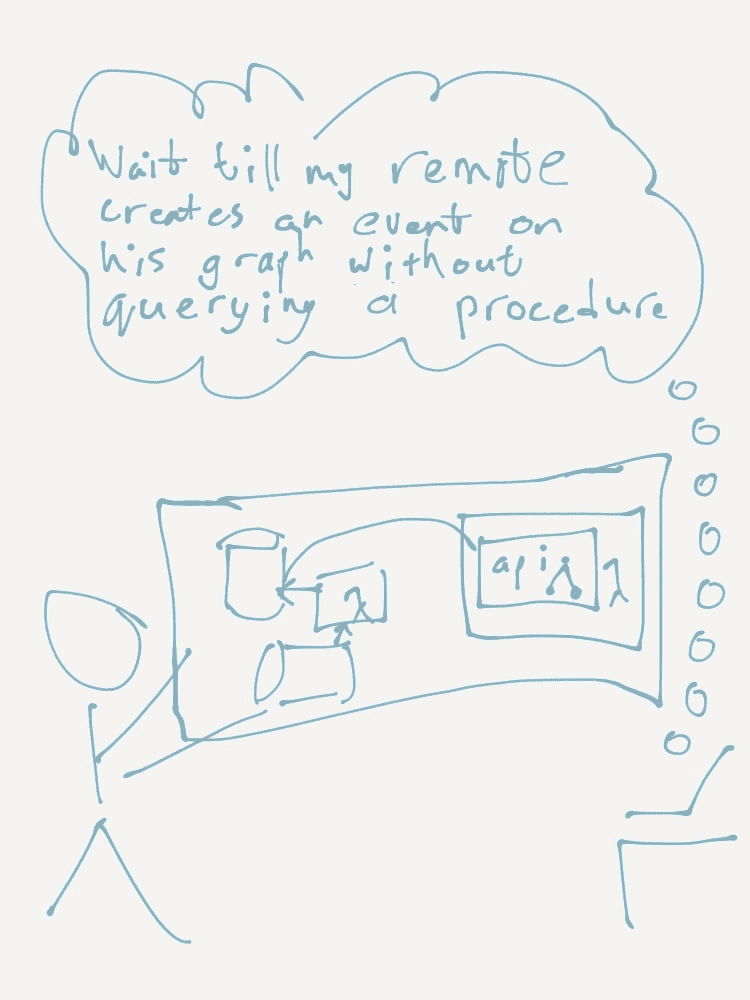 Wait till my remote
creates an event on
his graph without
querying a procedure
api λ
λ